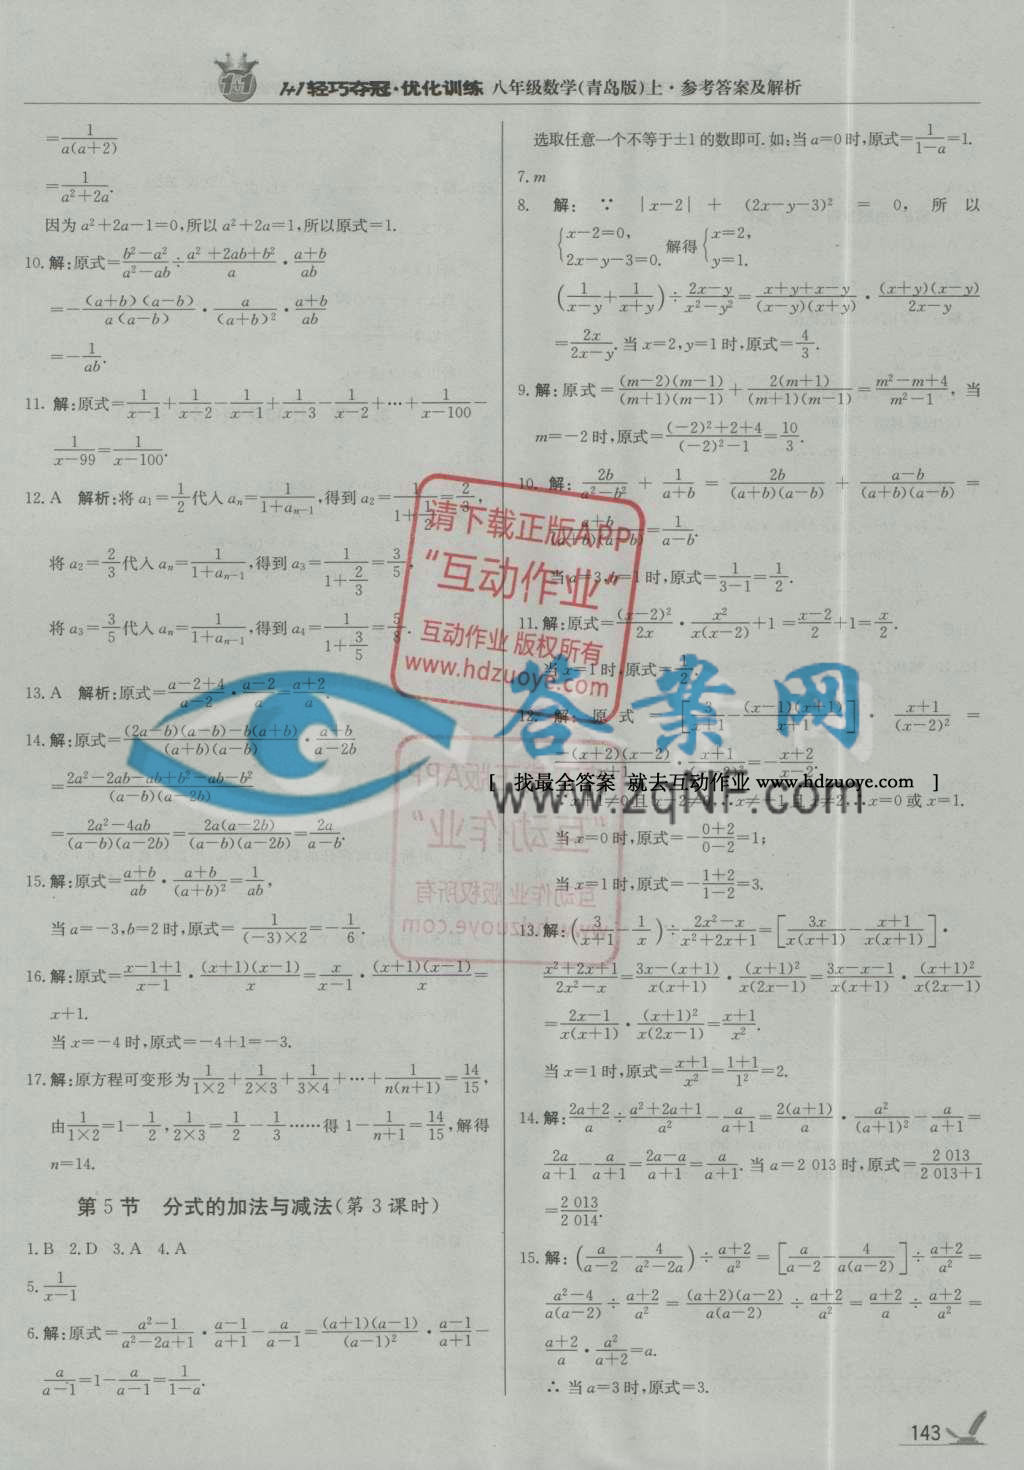 1+1轻巧夺冠·优化训练 八年级数学(青岛版)上·参考答案及解析
=1/(a(a+2))
=1/(a²+2a).
因为a²+2a-1=0,所以a²+2a=1,所以原式=1.
10.解:原式=(b²-a²)/(a²-ab)÷(a²+2ab+b²)/a·(a+b)/(ab)
=-((a+b)(a-b))/(a(a-b))·a/(a+b)²·(a+b)/(ab)
=-1/(ab).
11.解:原式=1/(x-1)+1/(x-2)-1/(x-1)+1/(x-3)-1/(x-2)+…+1/(x-100)-
1/(x-99)=1/(x-100).
12.A 解析:将a₁=1/2代入aₙ=1/(1+aₙ₋₁),得到a₂=1/(1+1/2)=2/3,
将a₂=2/3代入aₙ=1/(1+aₙ₋₁),得到a₃=1/(1+2/3)=3/5,
将a₃=3/5代入aₙ=1/(1+aₙ₋₁),得到a₄=1/(1+3/5)=5/8.
13.A 解析:原式=(a-2+4)/(a-2)·(a-2)/a=(a+2)/a.
14.解:原式=((2a-b)(a-b)-b(a+b))/((a+b)(a-b))·(a+b)/(a-2b)
=(2a²-2ab-ab+b²-ab-b²)/((a-b)(a-2b))
=(2a²-4ab)/((a-b)(a-2b))=(2a(a-2b))/((a-b)(a-2b))=2a/(a-b).
15.解:原式=(a+b)/(ab)·(a+b)/(a+b)²=1/(ab),
当a=-3,b=2时,原式=1/((-3)×2)=-1/6.
16.解:原式=(x-1+1)/(x-1)·((x+1)(x-1))/x=x/(x-1)·((x+1)(x-1))/x=
x+1.
当x=-4时,原式=-4+1=-3.
17.解:原方程可变形为1/(1×2)+1/(2×3)+1/(3×4)+…+1/(n(n+1))=14/15,
由1/(1×2)=1-1/2,1/(2×3)=1/2-1/3……得1-1/(n+1)=14/15,解得
n=14.
第5节 分式的加法与减法(第3课时)
1.B 2.D 3.A 4.A
5.1/(x-1)
6.解:原式=(a²-1)/(a²-2a+1)·(a-1)/(a+1)-a/(a-1)=((a+1)(a-1))/(a-1)²·(a-1)/(a+1)-
a/(a-1)=1-a/(a-1)=1/(1-a).
选取任意一个不等于±1的数即可.如:当a=0时,原式=1/(1-a)=1.
7.m
8. 解: ∵ |x-2| + (2x-y-3)² = 0, 所以
{x-2=0, 2x-y-3=0. 解得{x=2, y=1.
(1/(x-y)+1/(x+y))÷(2x-y)/(x²-y²)=(x+y+x-y)/((x-y)(x+y))·((x+y)(x-y))/(2x-y)
=2x/(2x-y).当x=2,y=1时,原式=4/3.
9.解:原式=((m-2)(m-1))/((m+1)(m-1))+(2(m+1))/((m+1)(m-1))=(m²-m+4)/(m²-1), 当
m=-2时,原式=((-2)²+2+4)/((-2)²-1)=10/3.
10. 解: 2b/(a²-b²) + 1/(a+b) = 2b/((a+b)(a-b)) + (a-b)/((a+b)(a-b)) =
(a+b)/((a+b)(a-b))=1/(a-b).
当a=3,b=1时,原式=1/(3-1)=1/2.
11.解:原式=(x-2)²/(2x)·x²/(x(x-2))+1=(x-2)/2+1=x/2.
当x=1时,原式=1/2.
12. 解: 原式=[3/(x+1)-((x-1)(x+1))/(x+1)]·(x+1)/(x-2)² =
x=0或x=1.
当x=0时,原式=-(0+2)/(0-2)=1;
当x=1时,原式=-(1+2)/(1-2)=3.
13.解:(3/(x+1)-1/x)÷(2x²-x)/(x²+2x+1)=[3x/(x(x+1))-(x+1)/(x(x+1))]·
(x²+2x+1)/(2x²-x)=(3x-(x+1))/(x(x+1))·(x+1)²/(x(2x-1))=(3x-x-1)/(x(x+1))·(x+1)²/(x(2x-1))
=(2x-1)/(x(x+1))·(x+1)²/(x(2x-1))=(x+1)/x².
当x=1时,原式=(x+1)/x²=(1+1)/1²=2.
14.解:(2a+2)/a÷(a²+2a+1)/a²-a/(a+1)=(2(a+1))/a·a²/(a+1)²-a/(a+1)=
2a/(a+1)-a/(a+1)=(2a-a)/(a+1)=a/(a+1).当a=2 013时,原式=2 013/(2 013+1)
=2 013/2 014.
15.解:(a/(a-2)-4/(a²-2a))÷(a+2)/a²=[a/(a-2)-4/(a(a-2))]÷(a+2)/a²=
(a²-4)/(a(a-2))÷(a+2)/a²=((a+2)(a-2))/(a(a-2))÷(a+2)/a²=(a+2)/a÷(a+2)/a²=
(a+2)/a·a²/(a+2)=a.
∴当a=3时,原式=3.
143
请下载正版APP
“互动作业”
互动作业 版权所有
www.hdzuoye.com
答案网
www.zqnf.com
[ 找最全答案 就去互动作业 www.hdzuoye.com ]